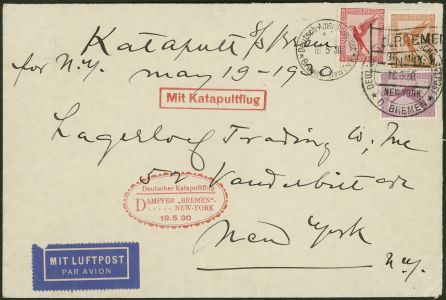 Katapult S/S Bremen
for N.Y. may 19-19
Mit Katapultflug
Lagerloef Trading Co, Inc
52 Vanderbilt ave
New York
N.Y.
Deutscher Katapultflug
DAMPFER „BREMEN"
NEW-YORK
19.5.30
MIT LUFTPOST
PAR AVION
BREMEN
NEW-YORK
D. BREMEN